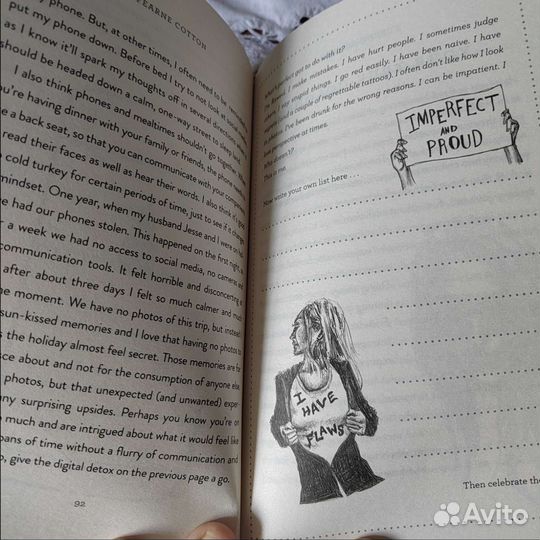 FEARNE COTTON
my phone. But, at other times, I often need to be
put my phone down. Before bed I try to not look at
as I know it'll spark my thoughts off in several directions
should be headed down a calm, one-way street to sleep
I also think phones and mealtimes shouldn't go together
you're having dinner with your family or friends, the phone
a back seat, so that you can communicate with your
read their faces as well as hear their words. I also think it's good
cold turkey for certain periods of time, just to see if it changes
mindset. One year, when my husband Jesse and I were on
we had our phones stolen. This happened on the first night, so
r a week we had no access to social media, no cameras and
communication tools. It felt horrible and disconcerting at
after about three days I felt so much calmer and much
he moment. We have no photos of this trip, but instead
sun-kissed memories and I love that having no photos to
s the holiday almost feel secret. Those memories are for
sce about and not for the consumption of anyone else.
photos, but that unexpected (and unwanted) exper
any surprising upsides. Perhaps you know you're on
o much and are intrigued about what it would feel like
pans of time without a flurry of communication and
o, give the digital detox on the previous page a go.
92
What's perfect got to do with it?
I make mistakes. I have hurt people. I sometimes judge
I say stupid things. I go red easily. I have been naive. I have
had a couple of regrettable tattoos). I often don't like how I look
I've been drunk for the wrong reasons. I can be impatient. I
perspective at times.
This is me.
Now write your own list here . . .
IMPERFECT
AND
PROUD
I
HAVE
FLAWS
Then celebrate the
Avito